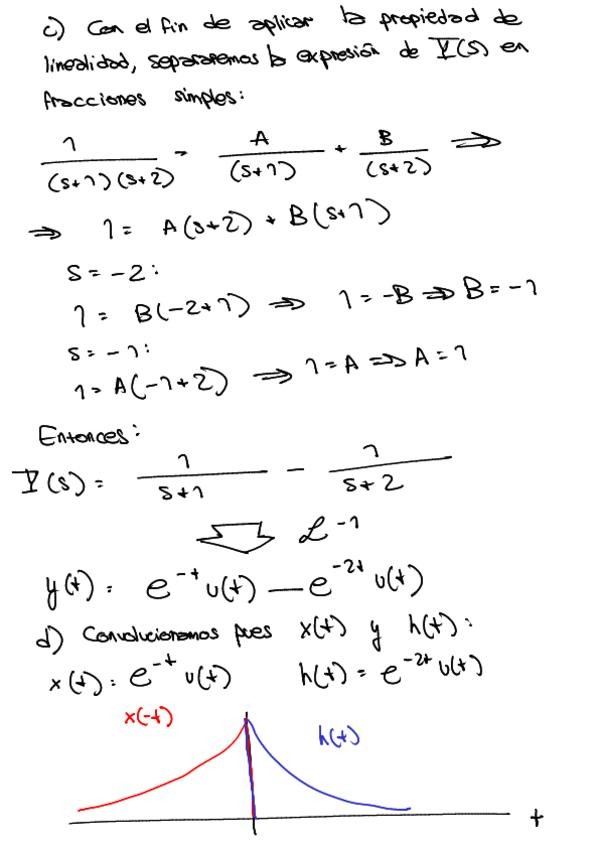 c) Con el fin de aplicar la propiedad de
linealidad, separaremos la expresión de Y(s) en
fracciones simples:
1/((s+1)(s+2)) = A/(s+1) + B/(s+2) ⇒
⇒ 1 = A(s+2) + B(s+1)
s = -2:
1 = B(-2+1) ⇒ 1 = -B ⇒ B = -1
s = -1:
1 = A(-1+2) ⇒ 1 = A ⇒ A = 1
Entonces:
Y(s) = 1/(s+1) - 1/(s+2)
ℒ⁻¹
y(t) = e^(-t) u(t) — e^(-2t) u(t)
d) Convolucionamos pues x(t) y h(t):
x(t) = e^(-t) u(t) h(t) = e^(-2t) u(t)
x(-t)
h(t)
t